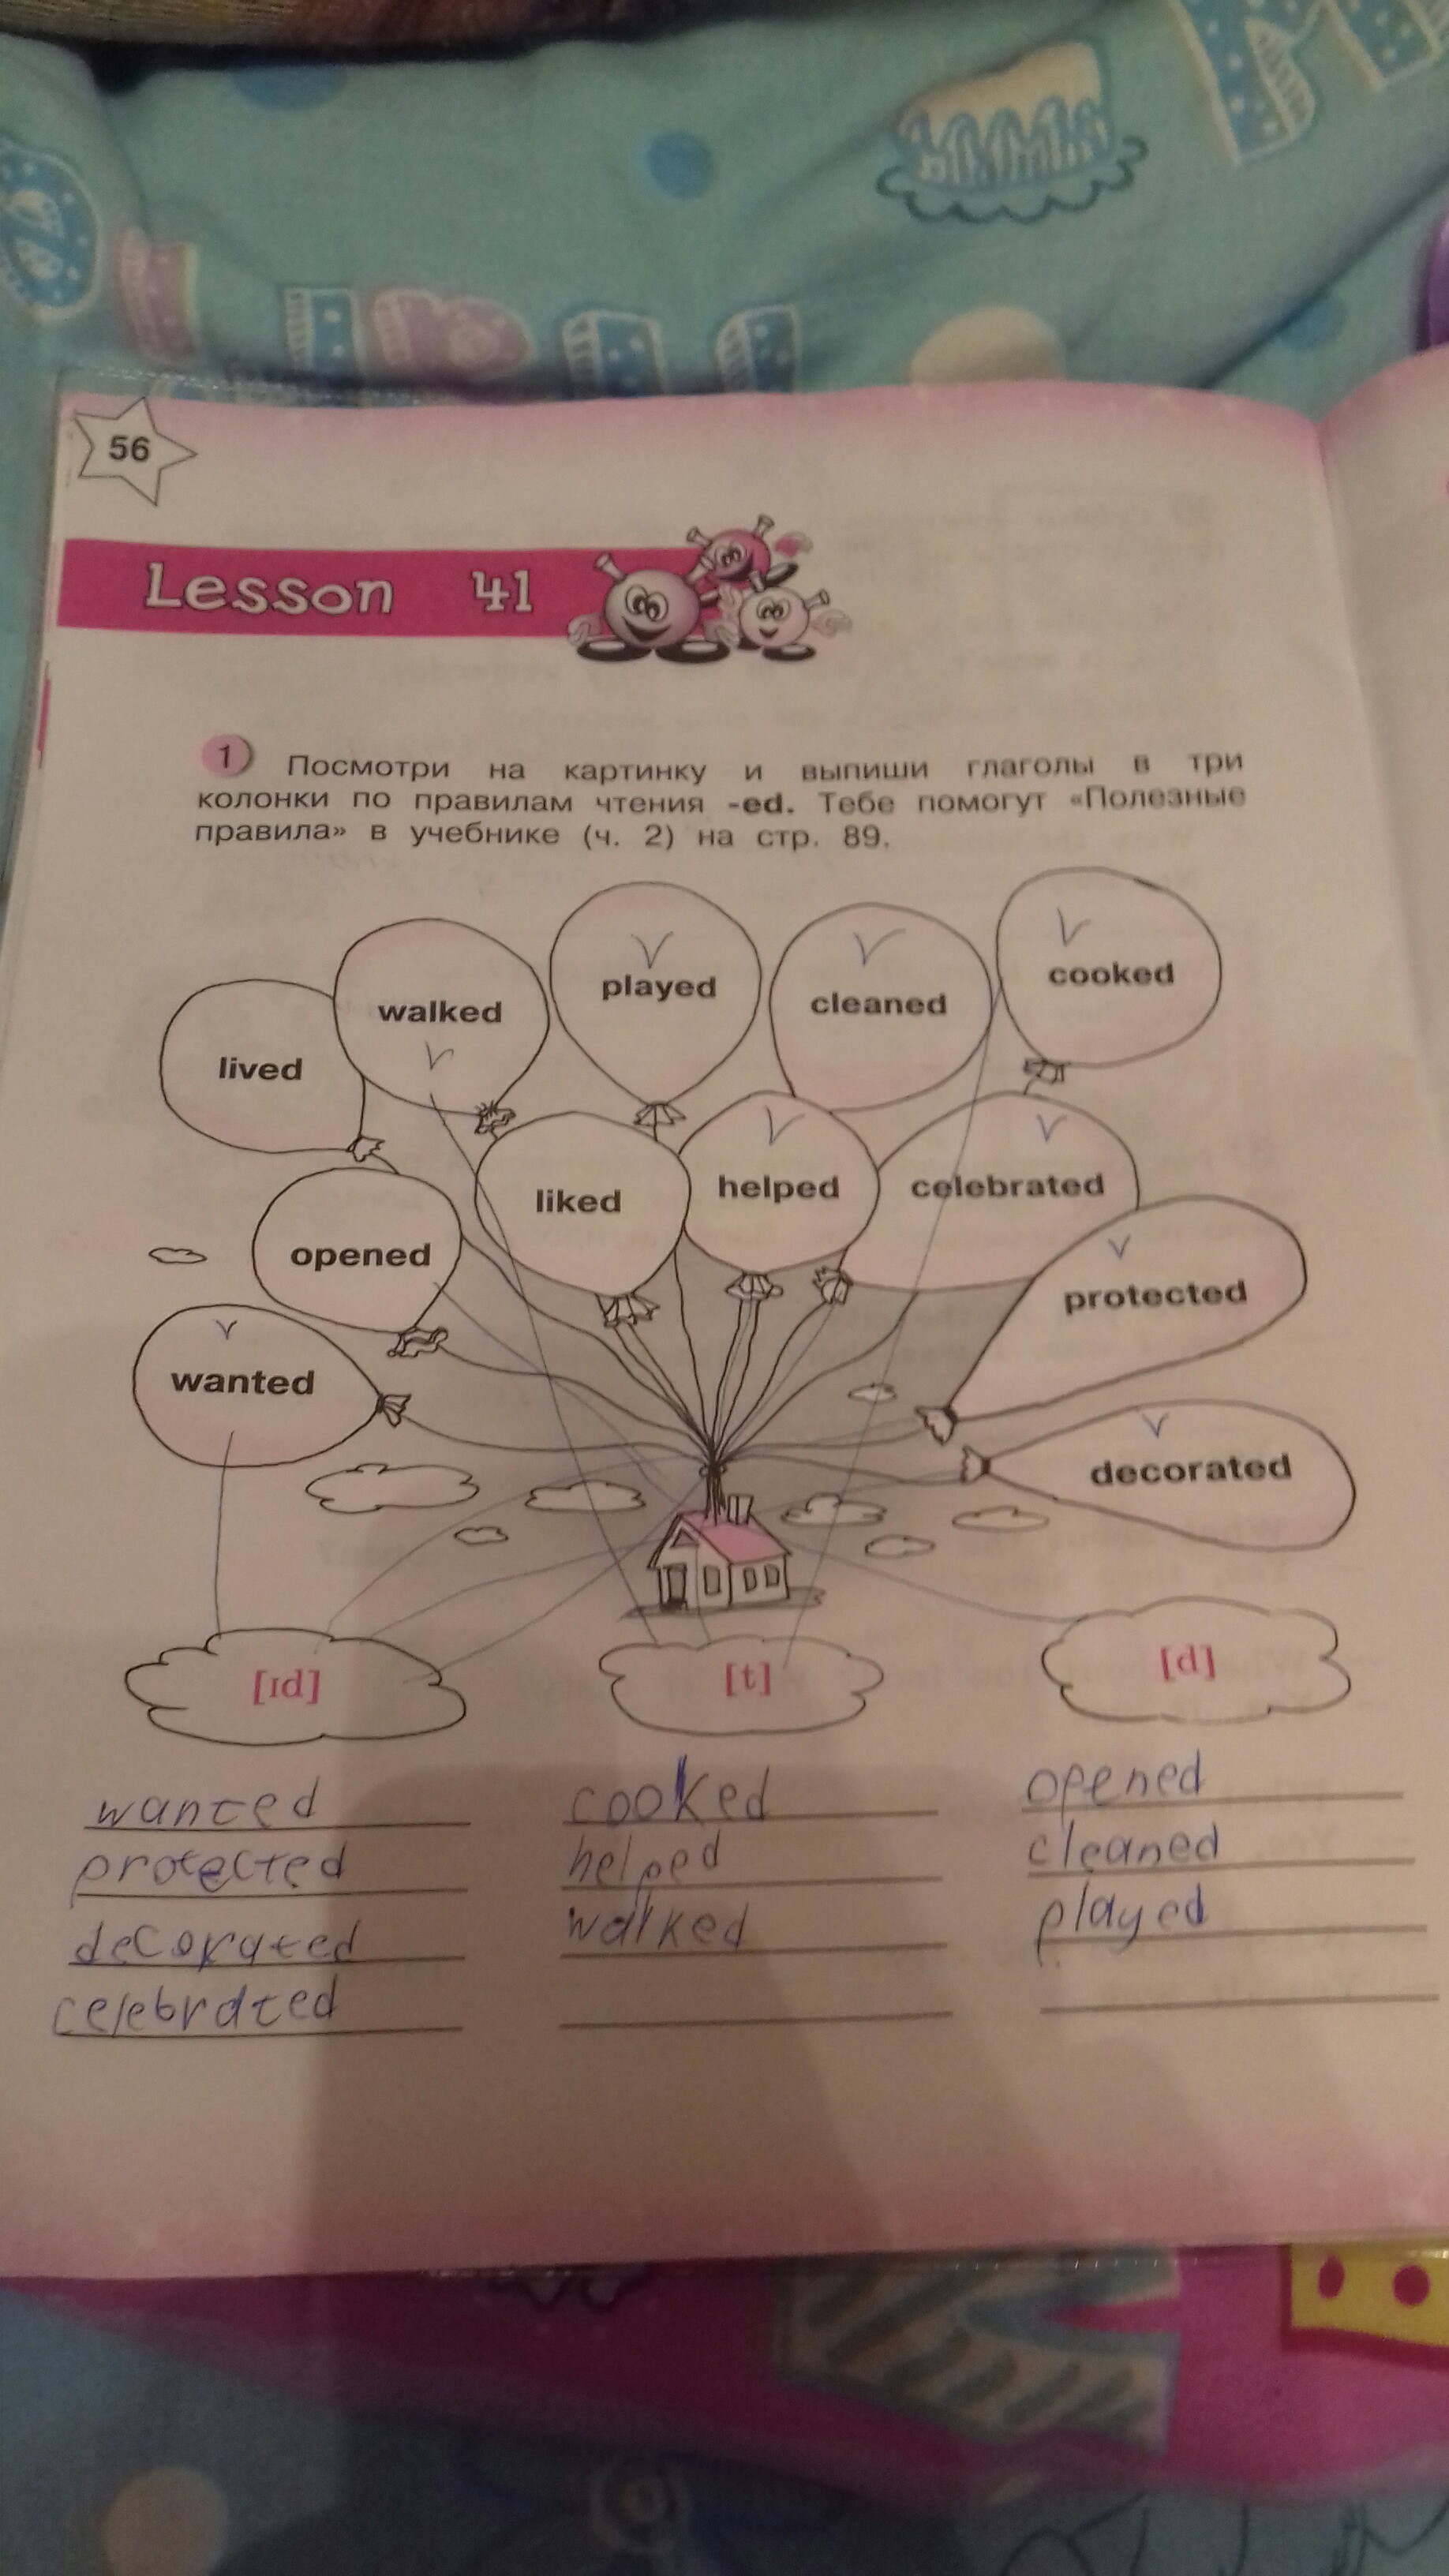 56
Lesson 41
1 Посмотри на картинку и выпиши глаголы в три
колонки по правилам чтения -ed. Тебе помогут «Полезные
правила» в учебнике (ч. 2) на стр. 89.
lived
walked
played
cleaned
cooked
opened
liked
helped
celebrated
wanted
protected
decorated
[ɪd] [t] [d]
wanted cooked opened
protected helped cleaned
decorated walked played
celebrated